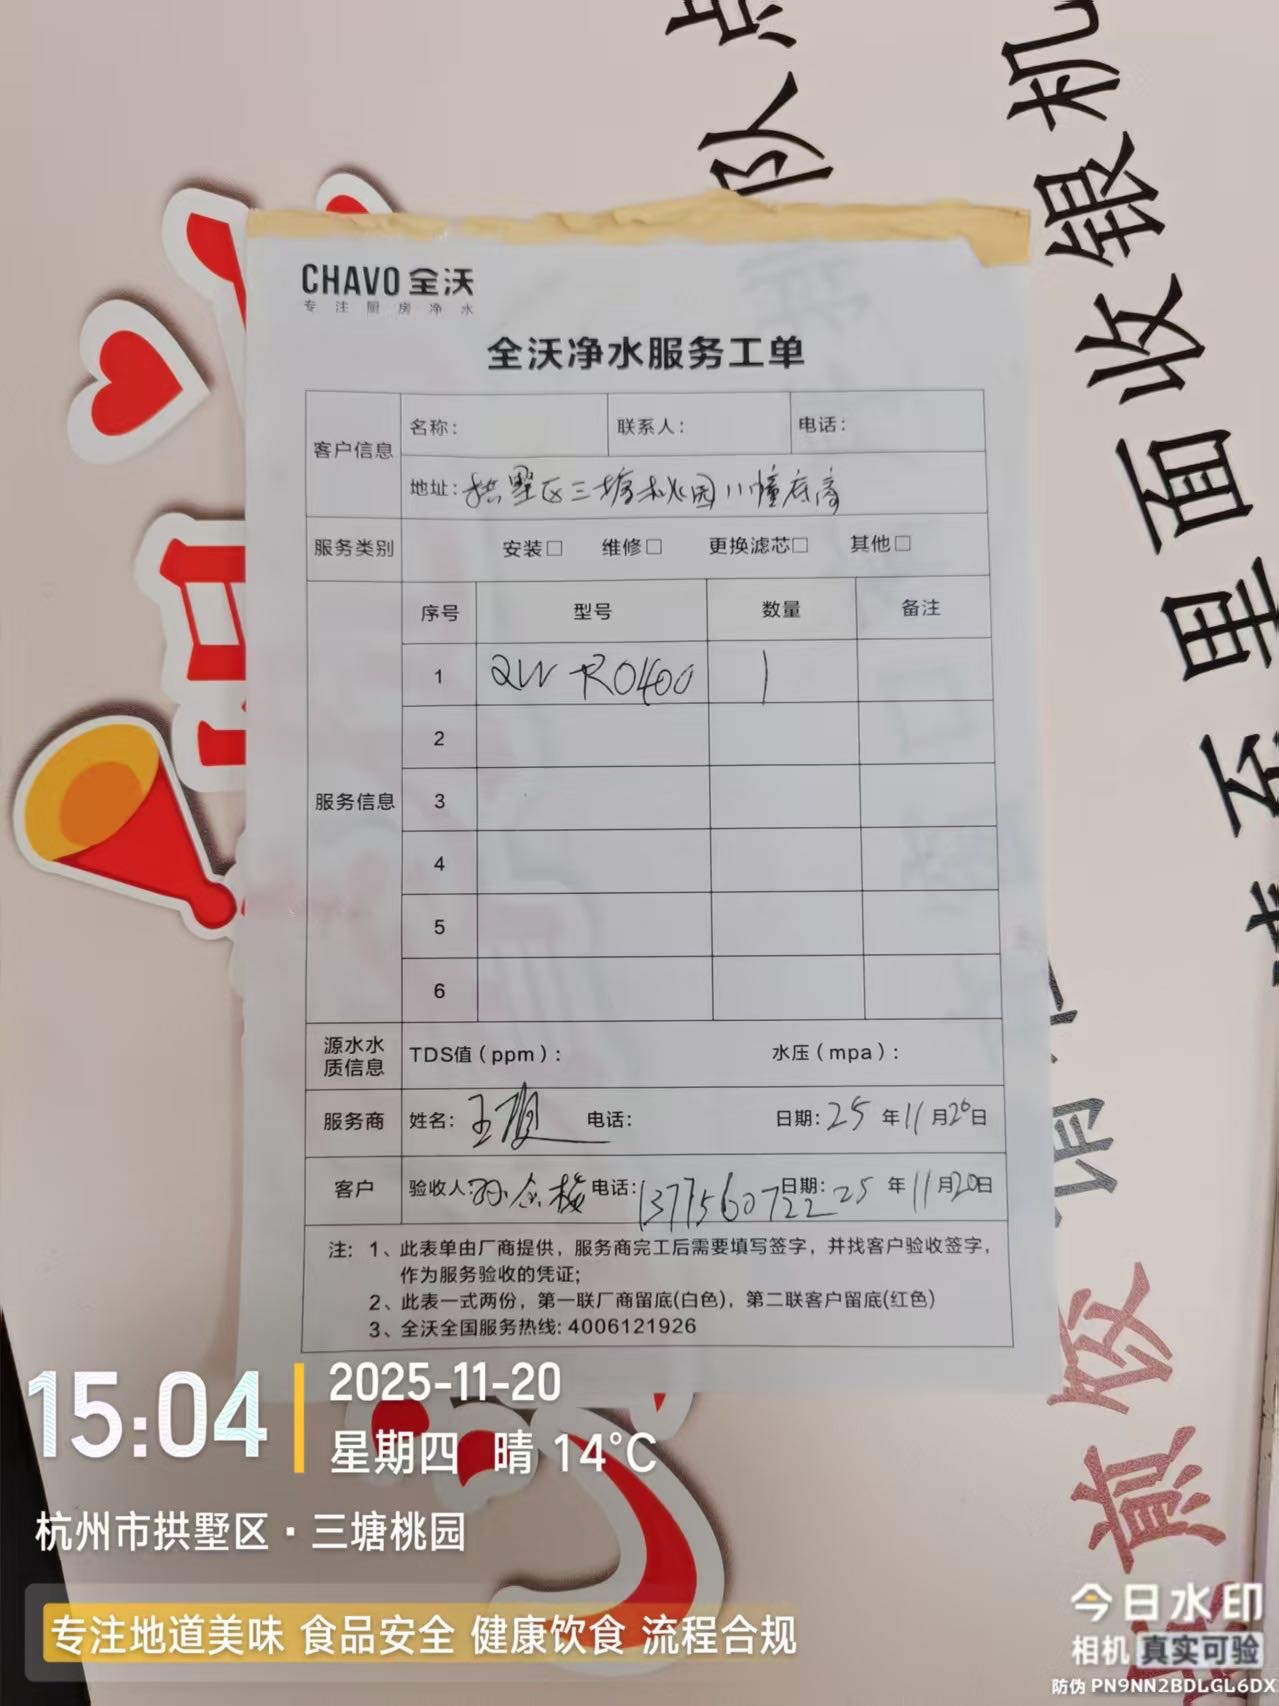 队
收银机
里面
至
CHAVO 全沃
专注厨房净水
全沃净水服务工单
客户信息 名称： 联系人： 电话：
地址：拱墅区三塘桃园11幢底商
服务类别 安装□ 维修□ 更换滤芯□ 其他□
服务信息 序号 型号 数量 备注
1 QW RO400 1
2
3
4
5
6
源水水质信息 TDS值（ppm）： 水压（mpa）：
服务商 姓名：王 电话： 日期：25年11月20日
客户 验收人：孙 电话：13775607222 日期：25年11月20日
注：1、此表单由厂商提供，服务商完工后需要填写签字，并找客户验收签字，
作为服务验收的凭证；
2、此表一式两份，第一联厂商留底(白色)，第二联客户留底(红色)
3、全沃全国服务热线: 4006121926
煎饺
15:04
2025-11-20
星期四 晴 14°C
杭州市拱墅区·三塘桃园
专注地道美味 食品安全 健康饮食 流程合规
今日水印
相机 真实可验
防伪 PN9NN2BDLGL6DX